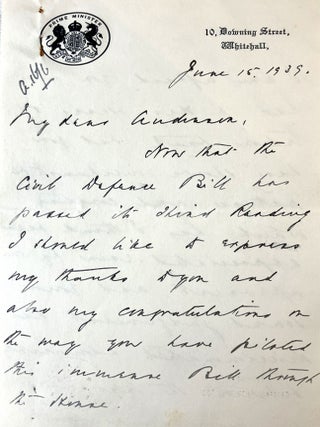 PRIME MINISTER
10, Downing Street,
Whitehall.
June 15. 1939.
My dear Anderson,
Now that the
Civil Defence Bill has
passed its Third Reading
I should like to express
my thanks to you and
also my congratulations on
the way you have piloted
this immense Bill through
the House.